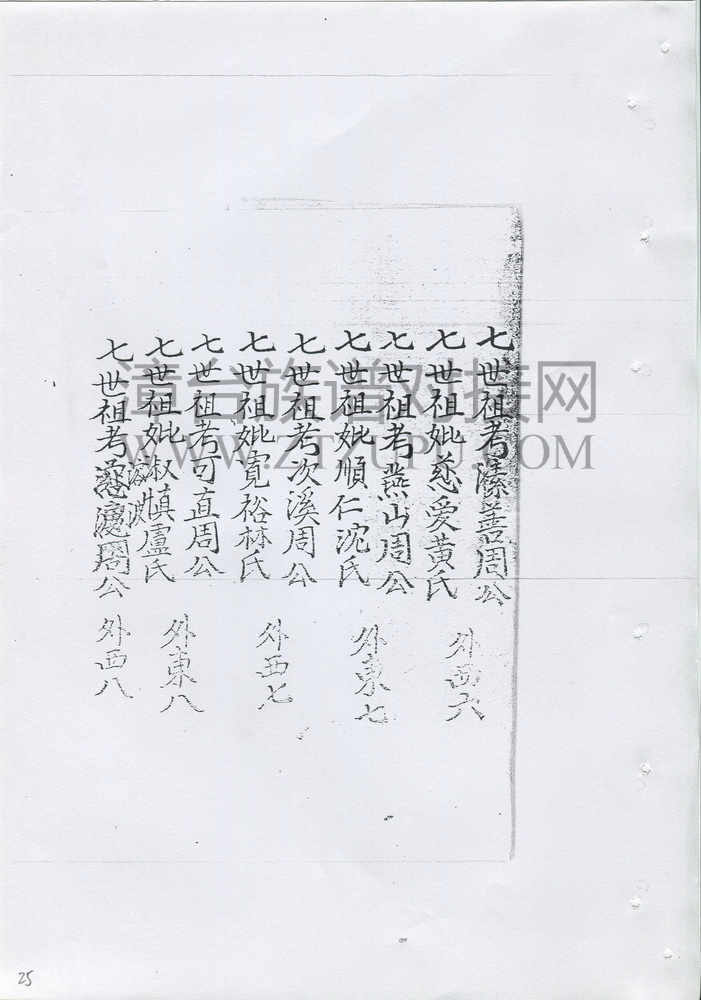 七世祖考溱善周公
七世祖妣慈愛黃氏
外西六
七世祖考燕山周公
七世祖妣順仁沈氏
外東七
七世祖考次溪周公
七世祖妣寬裕林氏
外西七
七世祖考可直周公
七世祖妣淑慎盧氏
外東八
七世祖考周公
外西八
漳台族谱对接网
WWW.ZTZUPU.COM
25